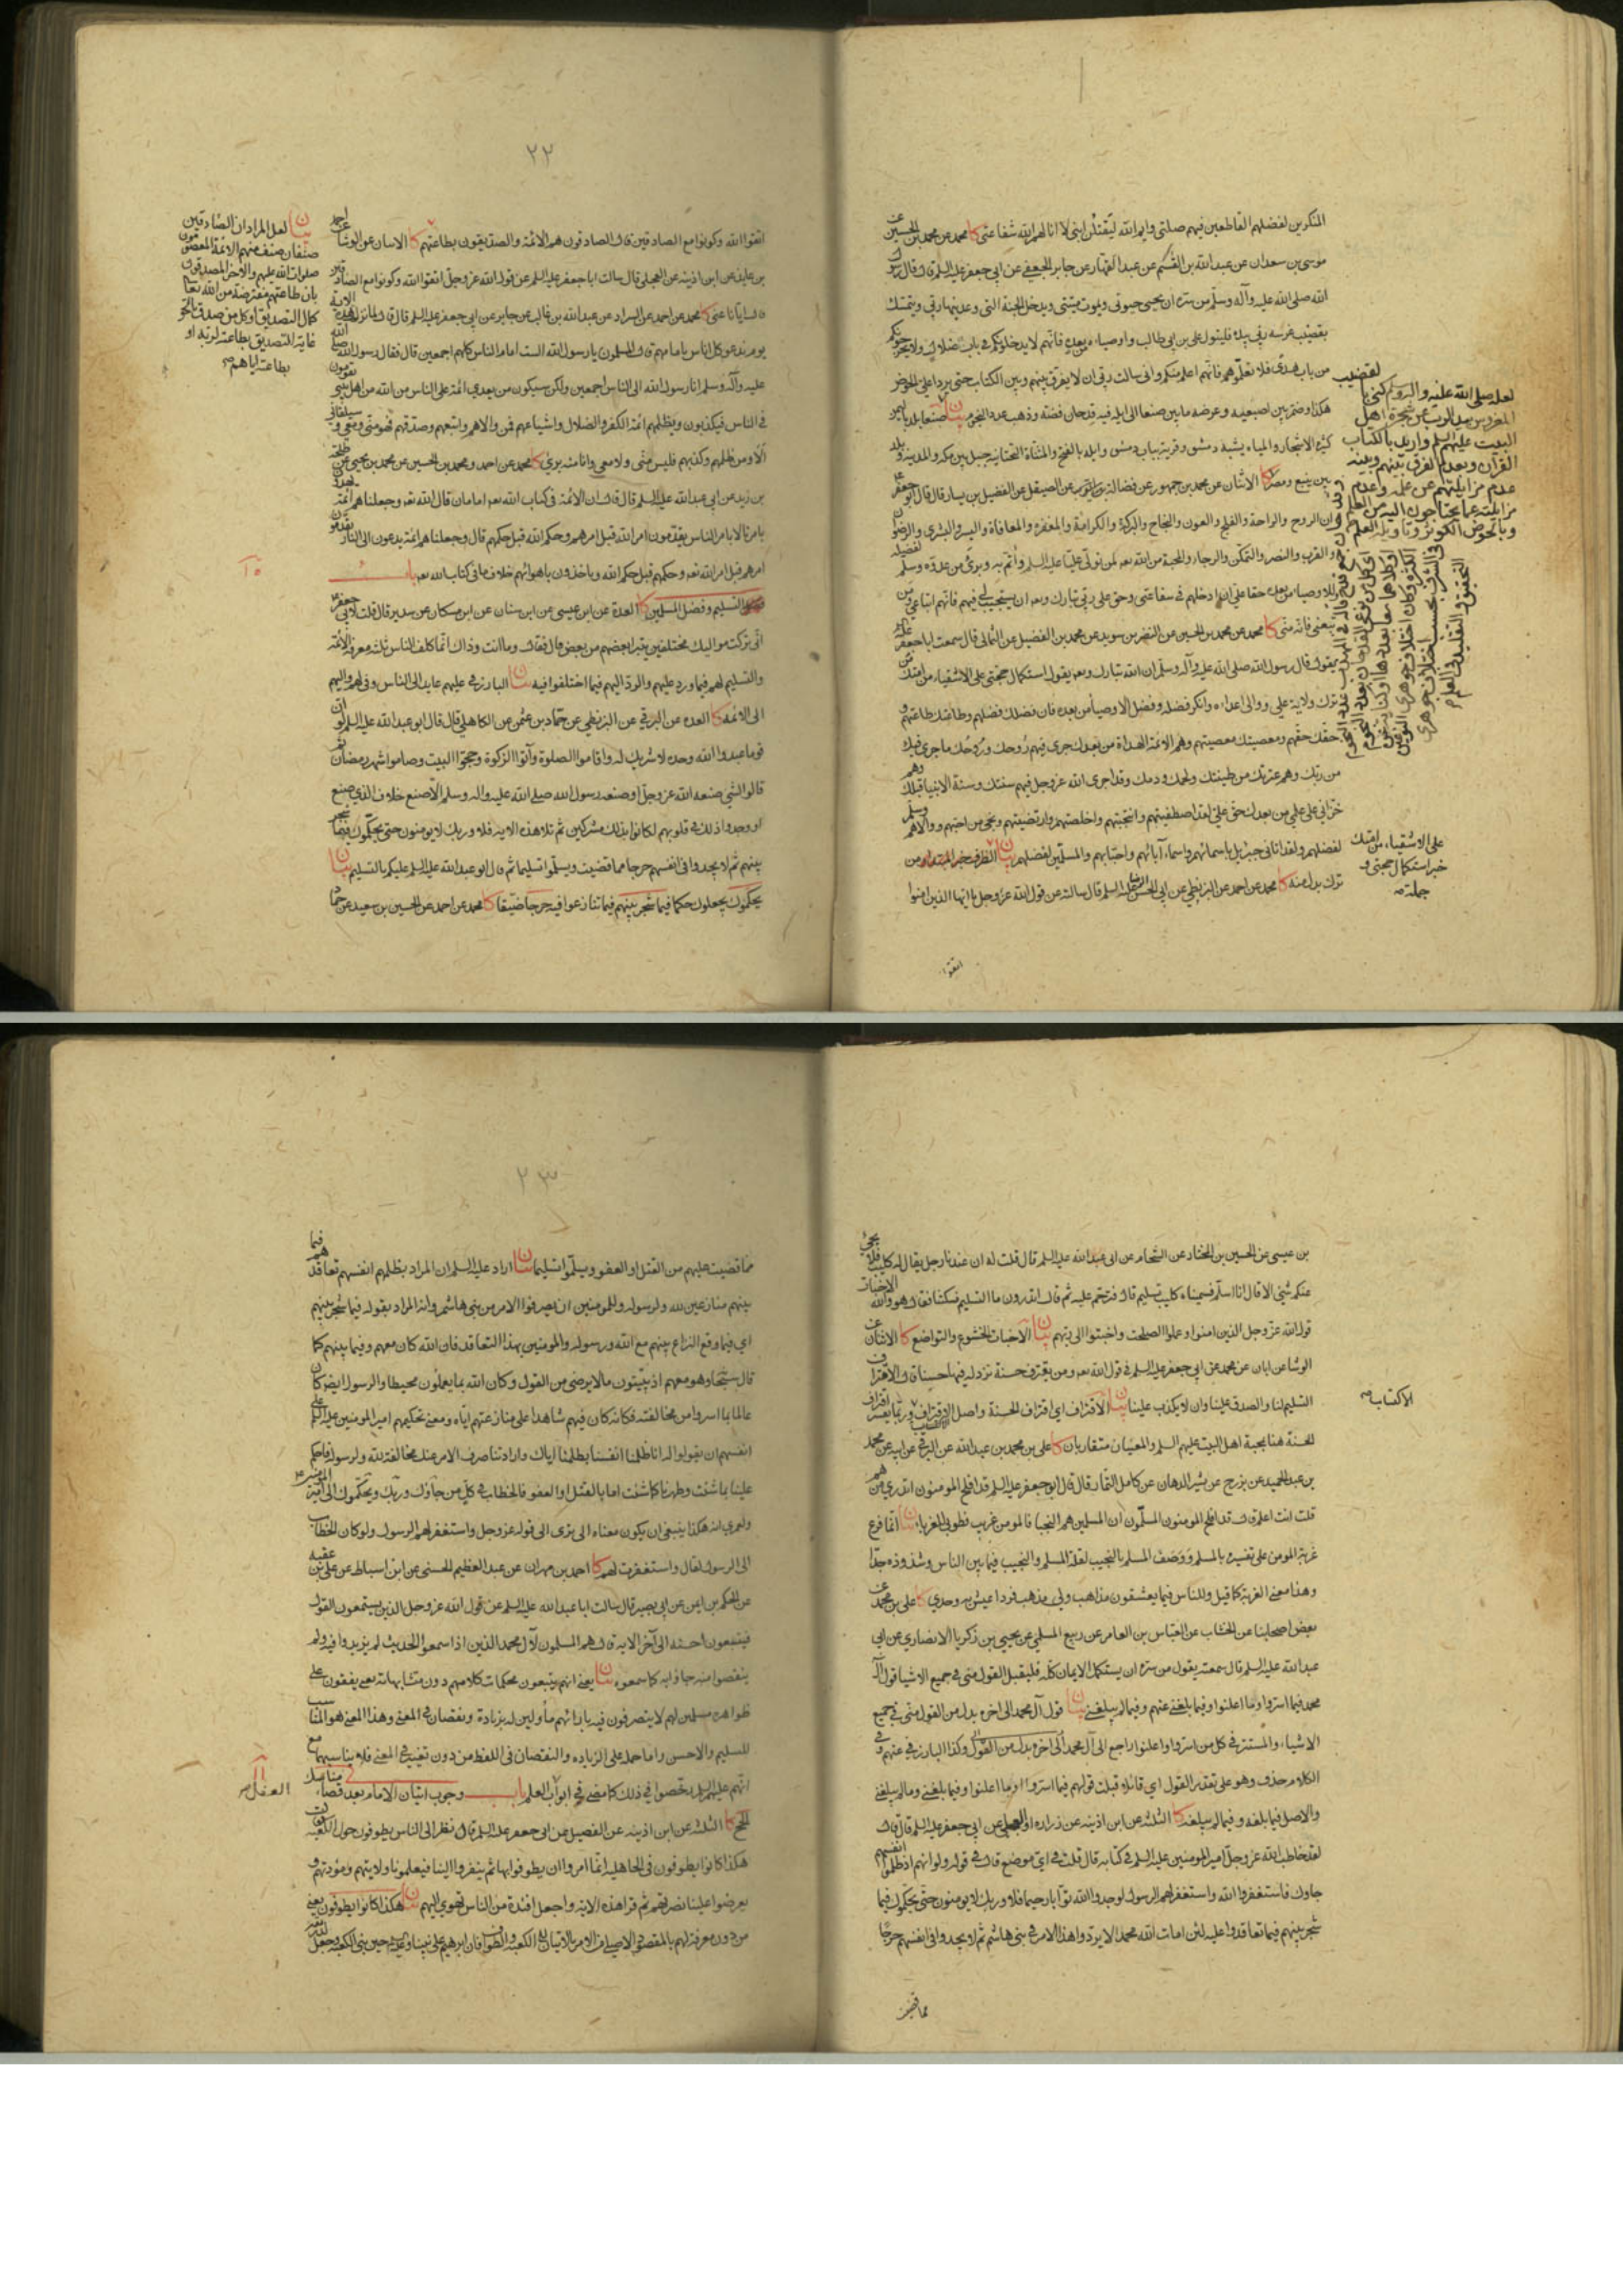 المنكرين لفضلهم القاطعين فيهم صلتي وايم الله ليقتلن ابني لا انالهم الله شفاعتي كا محمد عن محمد بن الحسين عن
موسى بن سعدان عن عبد الله بن القسم عن عبد القهار عن جابر الجعفي عن ابي جعفر عليه السلم قال قال رسول
الله صلى الله عليه وآله وسلم من سره ان يحيى حيوتي ويموت ميتتي ويدخل الجنة التي وعدنيها ربي ويتمسك
بقضيب غرسه ربي بيده فليتول علي بن ابي طالب واوصياءه من بعده فانهم لا يدخلونكم في باب ضلال ولا يخرجونكم
من باب هدى فلا تعلموهم فانهم اعلم منكم واني سالت ربي ان لا يفرق بينهم وبين الكتاب حتى يردا علي الحوض
هكذا وضم بين اصبعيه وعرضه ما بين صنعا الى ايله فيه قدحان فضة وذهب عدد النجوم بيان صنعا بلد باليمن
كثيرة الاشجار والمياه يشبه دمشق وقرية بباب دمشق وايله بالفتح والمثناة التحتانية جبل بين مكة والمدينة وبلد
بين ينبع ومصر كا الاثنان عن محمد بن جمهور عن فضالة بن ايوب عن الصيقل عن الفضيل بن يسار قال قال ابو جعفر
وان الروح والراحة والفلج والعون والنجاح والبركة والكرامة والمغفرة والمعافاة واليسر والبشرى والرضوان
والقرب والنصر والتمكن والرجاء والمحبة من الله تعه لمن تولى عليا عليه السلم وأتم به وبرئ من عدوه وسلم لفضله
وللاوصياء من بعده حقا علي ان ادخلهم في شفاعتي وحق على ربي تبارك وتعه ان يستجيب لي فيهم فانهم اتباعي ومن
تبعني فانه مني كا محمد عن محمد بن الحسين عن النضر بن سويد عن محمد بن الفضيل عن الثمالي قال سمعت ابا جعفر عليه السلم
يقول قال رسول الله صلى الله عليه وآله وسلم ان الله تبارك وتعه يقول استكمال حجتي على الاشقياء من امتك من
ترك ولاية علي ووالى اعداءه وانكر فضله وفضل الاوصيا من بعده فان فضلك فضلهم وطاعتك طاعتهم و
حقك حقهم ومعصيتك معصيتهم وهم الائمة الهداة من بعدك جرى فيهم روحك وروحك ما جرى فيك
من ربك وهم عترتك من طينتك ولحمك ودمك وقد اجرى الله عز وجل فيهم سنتك وسنة الانبيا قبلك وهم
خزاني على علمي من بعدك حق علي لقد اصطفيتهم وانتجبتهم واخلصتهم وارتضيتهم ونجى من احبهم ووالاهم وسلم
لفضلهم ولقد اتاني جبرئيل باسمائهم واسماء آبائهم واحبابهم والمسلمين لفضلهم بيان الظرف خبر المبتدا و من
ترك بدل منه كا محمد عن احمد عن البزنطي عن ابي الحسن الرضا عليه السلم قال سالته عن قول الله عز وجل يا ايها الذين امنوا
اتقوا
لعله صلى الله عليه وآله وسلم كنى بالقضيب
المغروس بيد الرب عن شجرة اهل
البيت عليهم السلم واريد بالكتاب
القرآن وبعدم الفرق بينهم وبينه
عدم مزايلتهم عن علمه وعدم
مزايلته عما يحتاجون اليه من العلم
وبالحوض الكوثر وتاويله العلم
على الاشقياء من امتك
خبر استكمال حجتي و
جملته صه
٢٢
اتقوا الله وكونوا مع الصادقين قال الصادقون هم الائمة والصديقون بطاعتهم كا الاثنان عن الوشا عن احمد
بن عايذ عن ابن اذينه عن العجلي قال سالت ابا جعفر عليه السلم عن قول الله عز وجل اتقوا الله وكونوا مع الصادقين
قال ايانا عنى كا محمد عن احمد عن السراد عن عبد الله بن غالب عن جابر عن ابي جعفر عليه السلم قال قال لما نزلت هذه الاية
يوم ندعو كل اناس بامامهم قال المسلمون يا رسول الله الست امام الناس كلهم اجمعين قال فقال رسول الله صلى الله
عليه وآله وسلم انا رسول الله الى الناس اجمعين ولكن سيكون من بعدي ائمة على الناس من الله من اهل بيتي يقومون
في الناس فيكذبون ويظلمهم ائمة الكفر والضلال واشياعهم فمن والاهم واتبعهم وصدقهم فهو مني ومعي وسيلقاني
ألا ومن ظلمهم وكذبهم فليس مني ولا معي وانا منه برئ كا محمد عن احمد ومحمد بن الحسين عن محمد بن يحيى عن طلحة
بن زيد عن ابي عبد الله عليه السلم قال قال ان الائمة في كتاب الله تعه امامان قال الله تعه وجعلناهم ائمة يهدون
بامرنا لا بامر الناس يقدمون امر الله قبل امرهم وحكم الله قبل حكمهم قال وجعلناهم ائمة يدعون الى النار يقدمون
امرهم قبل امر الله تعه وحكمهم قبل حكم الله وياخذون باهوائهم خلاف ما في كتاب الله تعه باب
التسليم وفضل المسلمين كا العدة عن ابن عيسى عن ابن سنان عن ابن مسكان عن سدير قال قلت لابي جعفر
اني تركت مواليك مختلفين يتبرا بعضهم من بعض قال فقال وما انت وذاك انما كلف الناس ثلثة معرفة الائمة
والتسليم لهم فيما ورد عليهم والرد اليهم فيما اختلفوا فيه بيان البارز في عليهم عايد الى الناس وفي لهم واليهم
الى الائمة كا العدة عن البرقي عن البزنطي عن حماد بن عثمن عن الكاهلي قال قال ابو عبد الله عليه السلم لو ان
قوما عبدوا الله وحده لا شريك له واقاموا الصلوة وآتوا الزكوة وحجوا البيت وصاموا شهر رمضان ثم
قالوا لشئ صنعه الله عز وجل او صنعه رسول الله صلى الله عليه واله وسلم الا صنع خلاف الذي صنع
او وجدوا ذلك في قلوبهم لكانوا بذلك مشركين ثم تلا هذه الاية فلا وربك لا يومنون حتى يحكموك فيما شجر
بينهم ثم لا يجدوا في انفسهم حرجا مما قضيت ويسلموا تسليما ثم قال ابو عبد الله عليه السلم عليكم بالتسليم بيان
يحكموك يجعلوك حكما فيما شجر بينهم فيما تنازعوا فيه حرجا ضيقا كا محمد عن احمد عن الحسين بن سعيد عن حماد
بيان لعل المراد ان الصادقين
صنفان صنف منهم الائمة المعصومون
صلوات الله عليهم والاخر المصدقون
بان طاعتهم مفترضة من الله تعالى
كمال التصديق او كل من صدق بالحق
غاية التصديق بطاعته لربه او
بطاعته اياهم صه
بن عيسى عن الحسين بن المختار عن الشحام عن ابي عبد الله عليه السلم قال قلت له ان عندنا رجل يقال له كليب فلا يجئ
عنكم شئ الا قال انا اسلم فسميناه كليب تسليم قال فترحم عليه ثم قال اتدرون ما التسليم فسكتنا فقال هو والله الاخبات
قول الله عز وجل الذين امنوا وعملوا الصلحت واخبتوا الى ربهم بيان الاخبات الخشوع والتواضع كا الاثنان عن
الوشا عن ابان عن محمد عن ابي جعفر عليه السلم في قول الله تعه ومن يقترف حسنة نزد له فيها حسنا قال الاقتراف
التسليم لنا والصدق علينا وان لا يكذب علينا بيان الاقتراف اي اقتراف الحسنة واصل الاقتراف الاكتساب وربما يفسر اقتراف
الحسنة هنا بمحبة اهل البيت عليهم السلم والمعنيان متقاربان كا علي بن محمد بن عبد الله عن البرقي عن ابيه عن محمد
بن عبد الحميد عن بزرج عن بشير الدهان عن كامل التمار قال قال ابو جعفر عليه السلم قد افلح المومنون اتدري من هم
قلت انت اعلم قال قد افلح المومنون المسلمون ان المسلمين هم النجبا فالمومن غريب فطوبى للغرباء بيان انما فرع
غربة المومن على تفسيره بالمسلم ووصف المسلم بالنجيب لقلة المسلم والنجيب فيما بين الناس وشذوذه جدا
وهذا معنى الغربة كما قيل وللناس فيما يعشقون مذاهب ولي مذهب فرد اعيش به وحدي كا علي بن محمد عن
بعض اصحابنا عن الخشاب عن العباس بن العامر عن ربيع المسلي عن يحيى بن زكريا الانصاري عن ابي
عبد الله عليه السلم قال سمعته يقول من سره ان يستكمل الايمان كله فليقل القول مني في جميع الاشيا قول آل
محمد فيما اسروا وما اعلنوا وفيما بلغني عنهم وفيما لم يبلغني بيان قول آل محمد الى اخره بدل من القول مني في جميع
الاشياء والمستتر في كل من اسروا واعلنوا راجع الى آل محمد وكذا البارز في عنهم وفي
الكلام حذف وهو على تقدير القول اي قائلا قبلت قولهم فيما اسروا وما اعلنوا وفيما بلغني وما لم يبلغني
والاصل فيما بلغه وفيما لم يبلغه كا الثلثة عن ابن اذينه عن زرارة او العجلي عن ابي جعفر عليه السلم قال قال
لقد خاطب الله عز وجل امير المومنين عليه السلم في كتابه قال قلت في اي موضع قال في قوله ولو انهم اذ ظلموا انفسهم
جاوك فاستغفروا الله واستغفر لهم الرسول لوجدوا الله توابا رحيما فلا وربك لا يومنون حتى يحكموك فيما
شجر بينهم فيما تعاقدوا عليه لئن امات الله محمدا لا يردوا هذا الامر في بني هاشم ثم لا يجدوا في انفسهم حرجا
مما قضيت
الاكتساب صه
٢٣
مما قضيت عليهم من القتل او العفو ويسلموا تسليما بيان اراد عليه السلم ان المراد بظلمهم انفسهم تعاقدهم فيما
بينهم منازعين لله ولرسوله وللمومنين ان يصرفوا الامر من بني هاشم وانه المراد بقوله فيما شجر بينهم
اي فيما وقع النزاع بينهم مع الله ورسوله والمومنين بهذا التعاقد فان الله كان معهم وفيما بينهم كما
قال سبحانه وهو معهم اذ يبيتون ما لا يرضى من القول وكان الله بما يعملون محيطا والرسول ايضا كان
عالما بما اسروا من مخالفته فكانه كان فيهم شاهدا على منازعتهم اياه ومعنى تحكيمهم امير المومنين عليه السلم على
انفسهم ان يقولوا له انا ظلمنا انفسنا بظلمنا اياك وارادتنا صرف الامر عنك مخالفة لله ولرسوله فاحكم
علينا بما شئت وطهرنا كما شئت اما بالقتل او العفو فالخطاب في كل من جاؤك وربك ويحكموك الى امير المومنين
ولعمري انه هكذا ينبغي ان يكون معناه الى قوله عز وجل واستغفر لهم الرسول ولو كان الخطاب
الى الرسول لقال واستغفرت لهم كا احمد بن مهران عن عبد العظيم الحسني عن ابن اسباط عن علي بن عقبه
عن الحكم بن ايمن عن ابي بصير قال سالت ابا عبد الله عليه السلم عن قول الله عز وجل الذين يستمعون القول
فيتبعون احسنه الى آخر الاية قال هم المسلمون لآل محمد الذين اذا سمعوا الحديث لم يزيدوا فيه ولم
ينقصوا منه جاؤا به كما سمعوه بيان يعني انهم يتبعون محكمات كلامهم دون متشابهاته يعني يقفون على
ظواهره مسلمين لهم لا يتصرفون فيه بارائهم مأولين له بزيادة ونقصان في المعنى وهذا المعنى هو المناسب
للتسليم والاحسن واما حمله على الزياده والنقصان في اللفظ من دون تغيير في المعنى فلا يناسبهما مع
انهم عليهم السلم رخصوا في ذلك كما مضى في ابواب العلم باب وجوب اتيان الامام بعد قضاء مناسك
الحج كا الثلثة عن ابن اذينه عن الفضيل عن ابي جعفر عليه السلم قال نظر الى الناس يطوفون حول الكعبة فقال
هكذا كانوا يطوفون في الجاهلية انما امروا ان يطوفوا بها ثم ينفروا الينا فيعلمونا ولايتهم ومودتهم و
يعرضوا علينا نصرتهم ثم قرا هذه الاية واجعل افئدة من الناس تهوي اليهم بيان هكذا كانوا يطوفون يعني
العقل صه